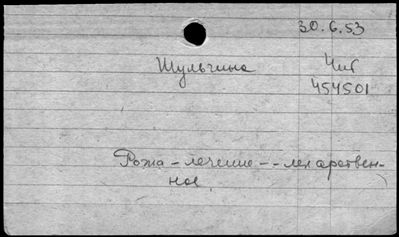 30.6.53
Шульгина Чит
454501
Рожа - лечение -- лекарствен-
ное